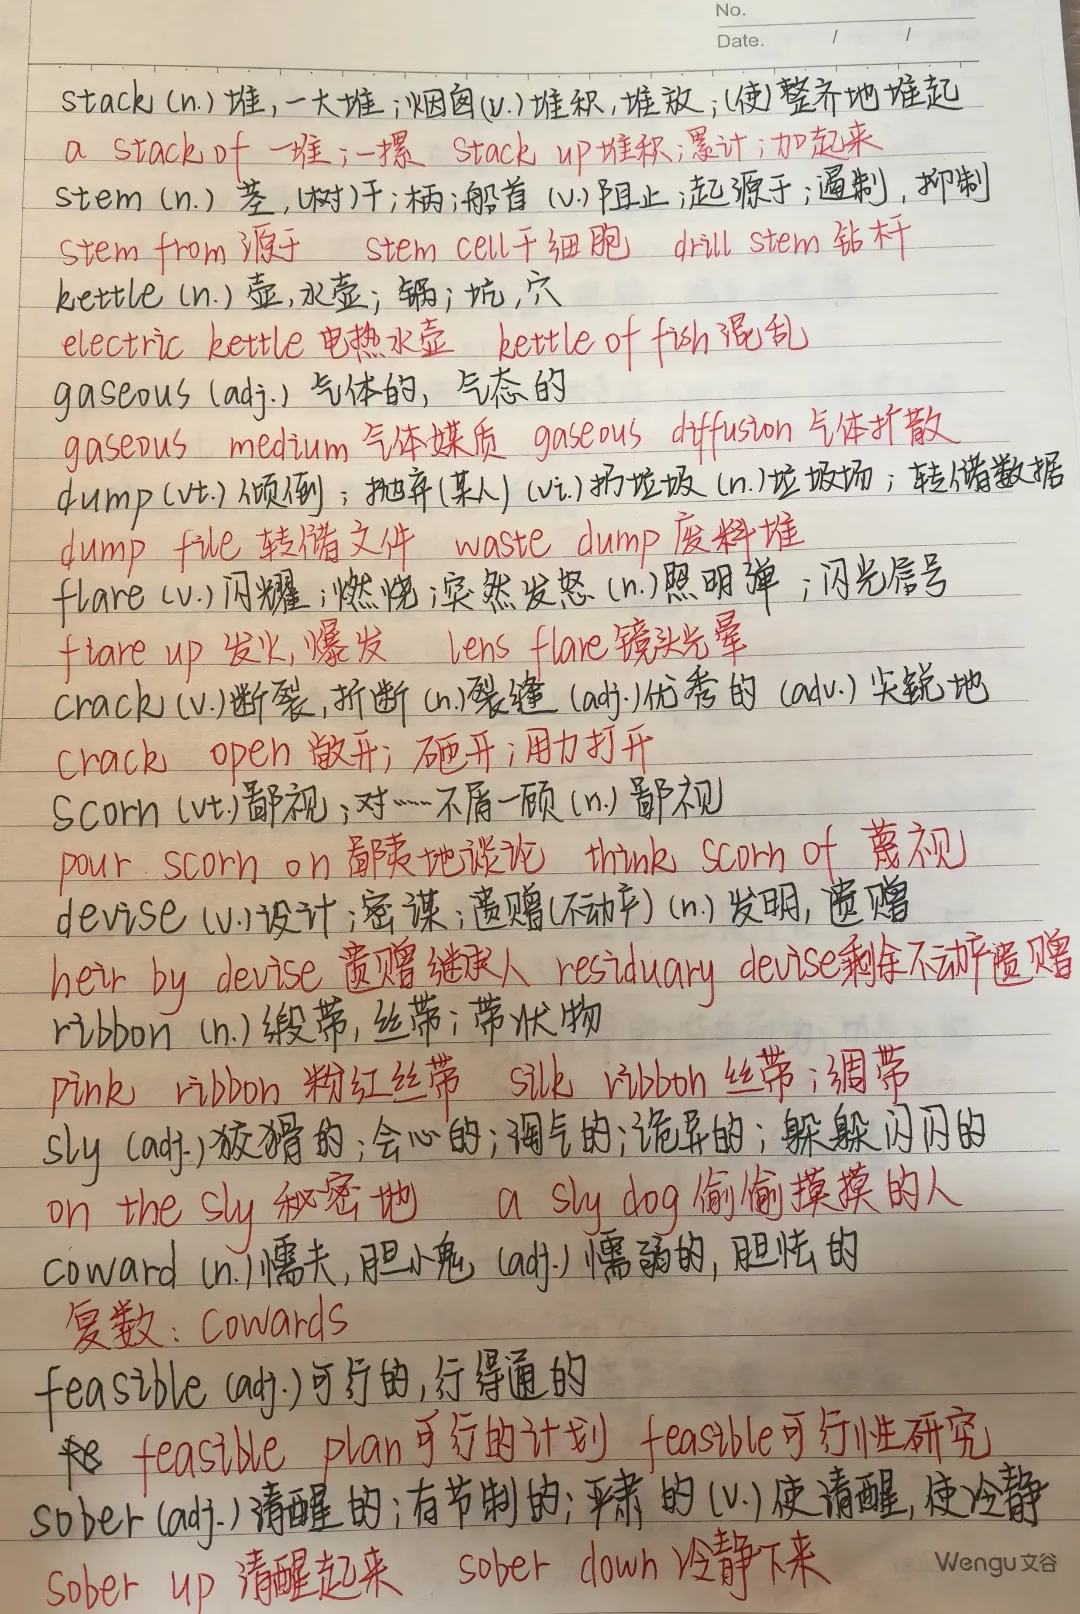 No.
Date. / /
stack (n.) 堆,一大堆;烟囱(v.)堆积,堆放;(使)整齐地堆起
a stack of 一堆;一摞 stack up 堆积;累计;加起来
stem (n.) 茎,(树)干;柄;船首 (v.)阻止;起源于;遏制,抑制
stem from 源于 stem cell干细胞 drill stem 钻杆
kettle (n.) 壶,水壶;锅;坑,穴
electric kettle 电热水壶 kettle of fish 混乱
gaseous (adj.) 气体的,气态的
gaseous medium 气体媒质 gaseous diffusion 气体扩散
dump (vt.) 倾倒;抛弃(某人) (vi.)扔垃圾 (n.)垃圾场;转储数据
dump file 转储文件 waste dump 废料堆
flare (v.)闪耀;燃烧;突然发怒 (n.)照明弹;闪光信号
flare up 发火,爆发 lens flare 镜头光晕
crack (v.)断裂,折断 (n.)裂缝 (adj.)优秀的 (adv.) 尖锐地
crack open 敞开;砸开;用力打开
scorn (vt.)鄙视;对……不屑一顾 (n.) 鄙视
pour scorn on 鄙夷地谈论 think scorn of 蔑视
devise (v.)设计;密谋;遗赠(不动产) (n.) 发明,遗赠
heir by devise 遗赠继承人 residuary devise剩余不动产遗赠
ribbon (n.)缎带,丝带;带状物
pink ribbon 粉红丝带 silk ribbon 丝带;绸带
sly (adj.)狡猾的;会心的;淘气的;诡异的;躲躲闪闪的
on the sly 秘密地 a sly dog 偷偷摸摸的人
coward (n.)懦夫,胆小鬼 (adj.) 懦弱的,胆怯的
复数: cowards
feasible (adj.)可行的,行得通的
feasible plan可行的计划 feasible可行性研究
sober (adj.) 清醒的;有节制的;严肃的 (v.) 使清醒,使冷静
sober up 清醒起来 sober down 冷静下来
Wengu 文谷